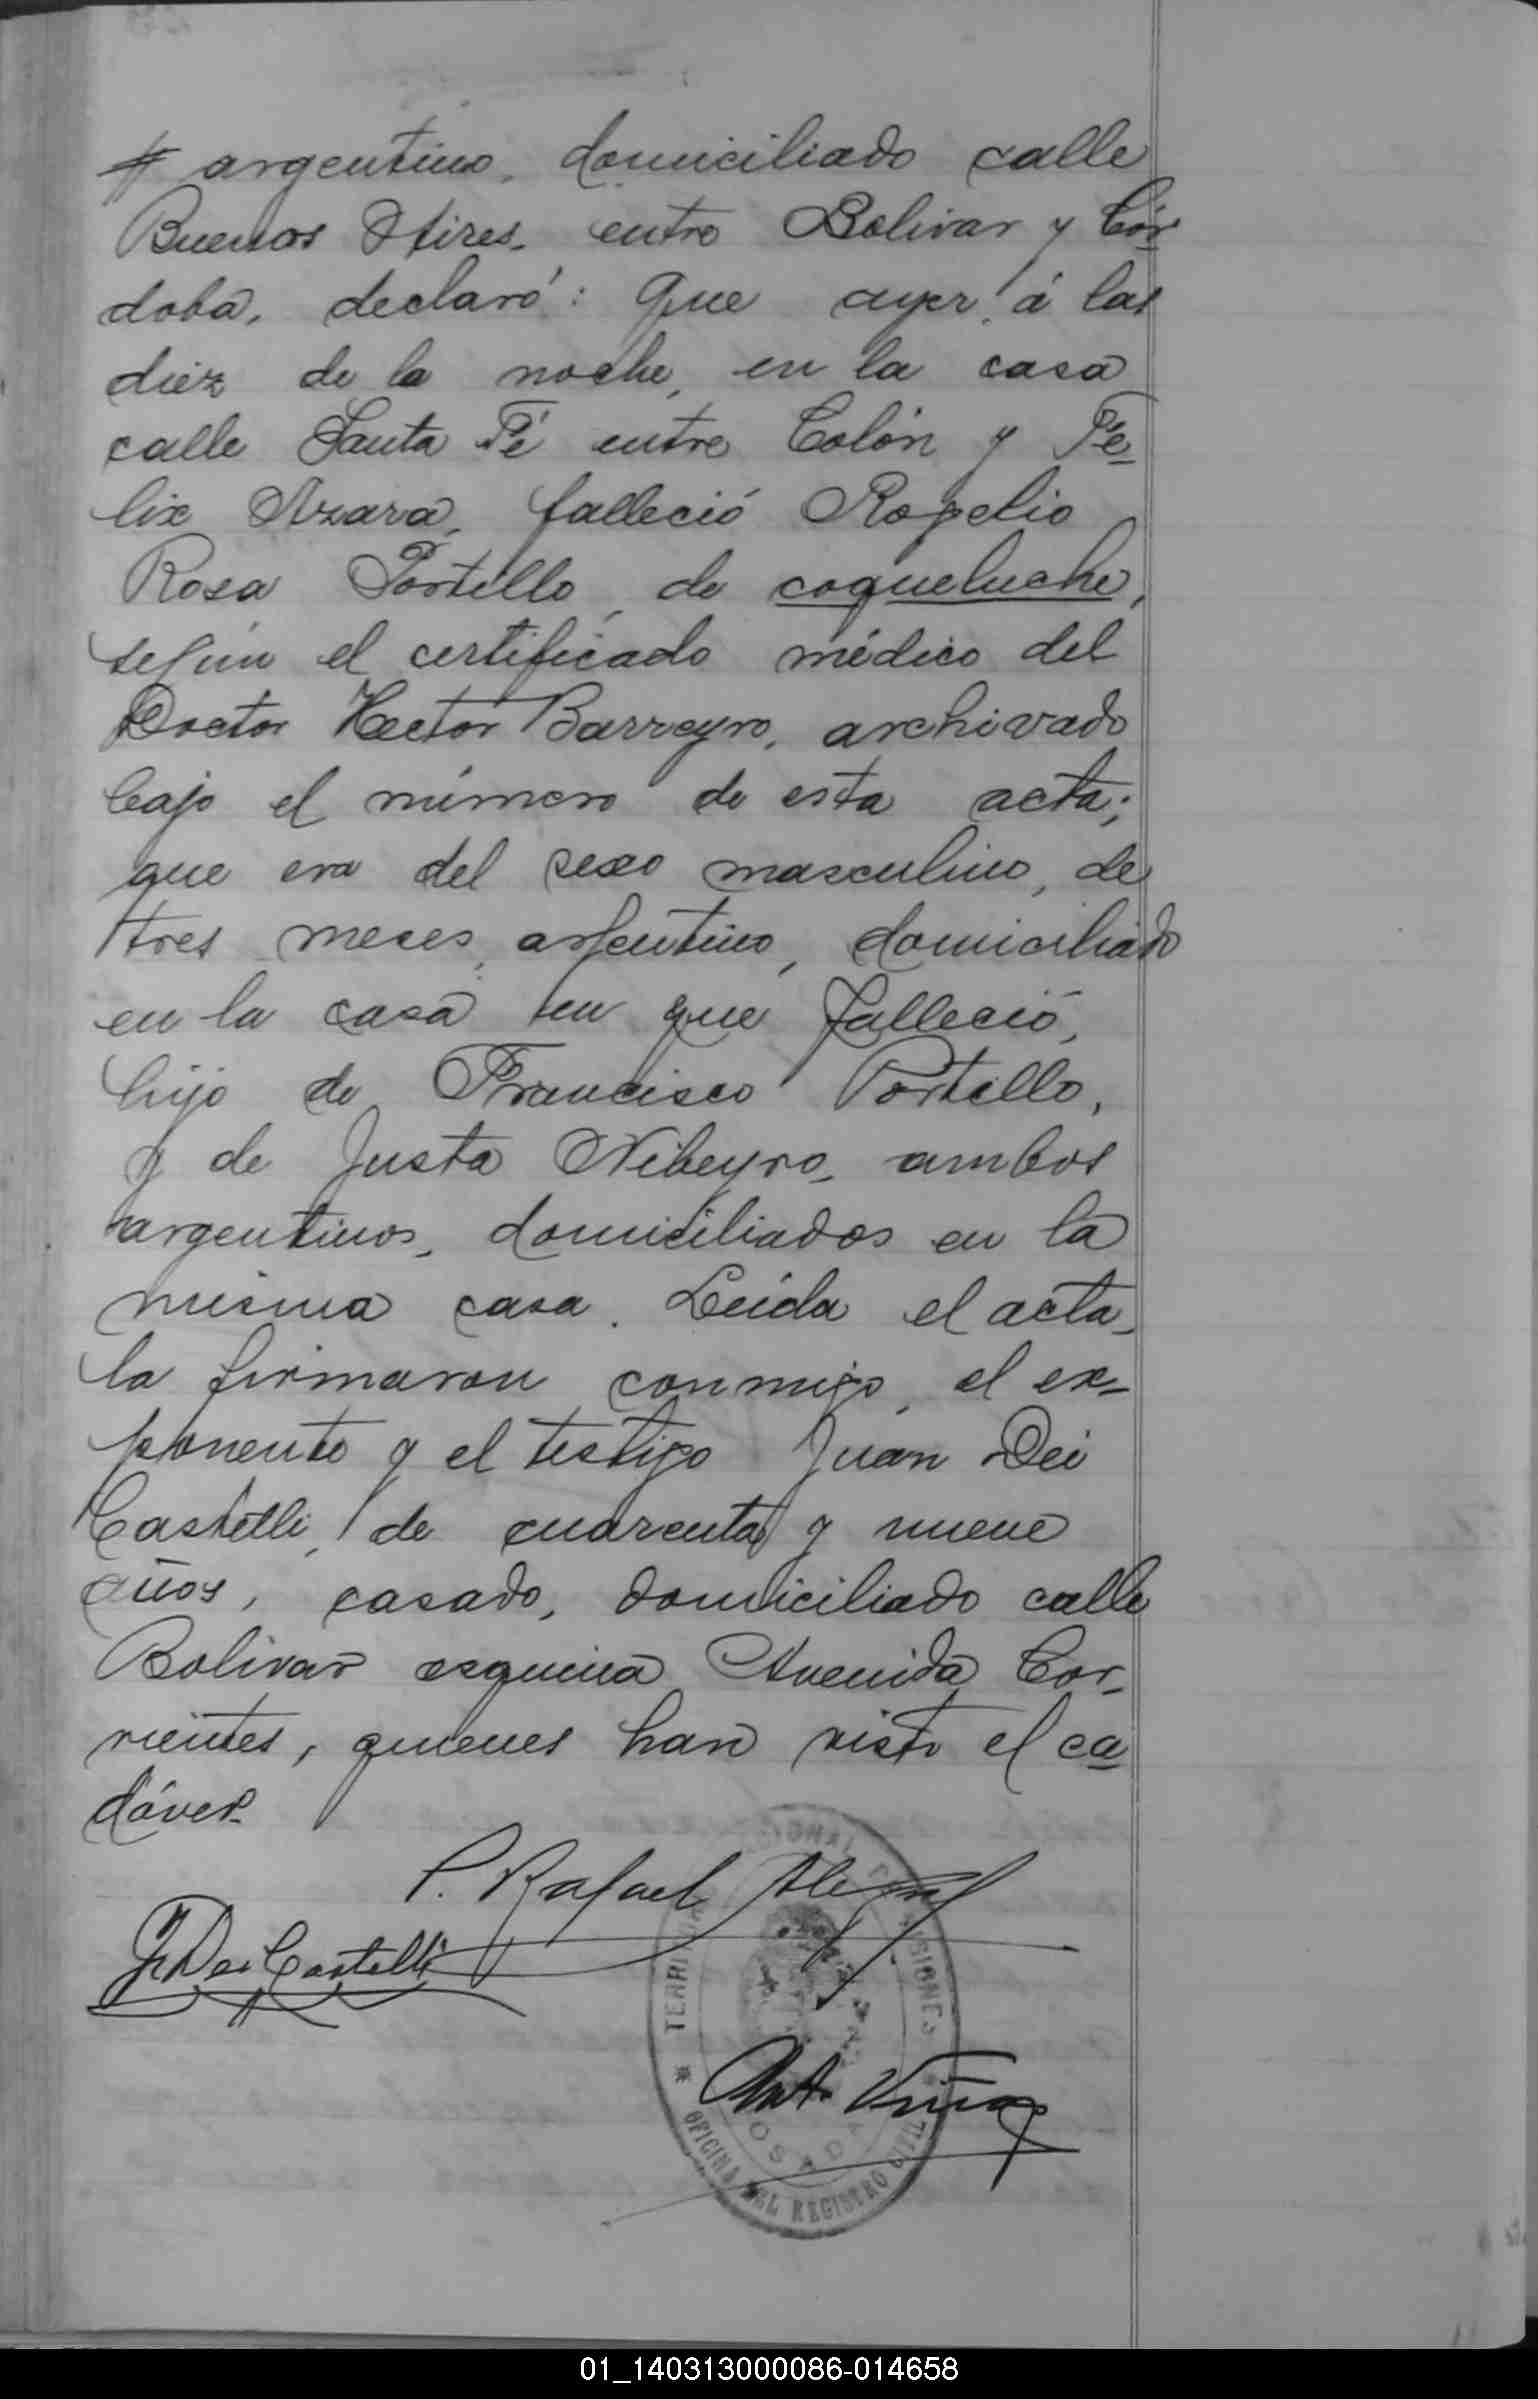 # argentino, domiciliado calle
Buenos Aires, entre Bolivar y Cór-
doba, declaró: Que ayer, á las
diez de la noche, en la casa
calle Santa Fé entre Colón y Fé-
lix Azara, falleció Rogelio
Rosa Portillo, de coqueluche,
según el certificado médico del
Doctor Hector Barreyro, archivado
bajo el número de esta acta;
que era del sexo masculino, de
tres meses, argentino, domiciliado
en la casa en que falleció,
hijo de Francisco Portillo,
y de Justa Ribeyro, ambos
argentinos, domiciliados en la
misma casa. Leída el acta,
la firmaron conmigo, el ex-
ponente y el testigo Juan Dei
Castelli, de cuarenta y nueve
años, casado, domiciliado calle
Bolivar esquina Avenida Cor-
rientes, quienes han visto el ca-
dáver.
P. Rafael
J. Dei Castelli
Ant. Viña
TERRITORIO NACIONAL DE MISIONES
POSADAS
OFICINA DEL REGISTRO CIVIL
01_140313000086-014658